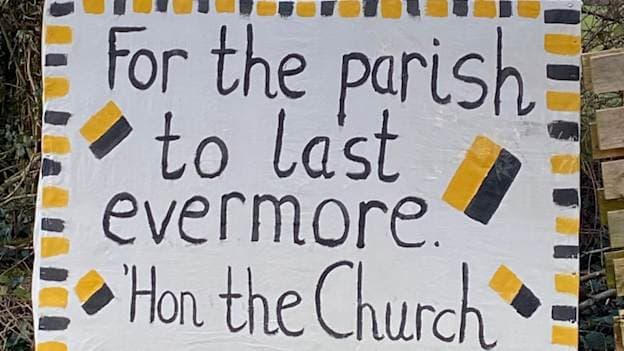 For the parish
to last
evermore.
'Hon the Church